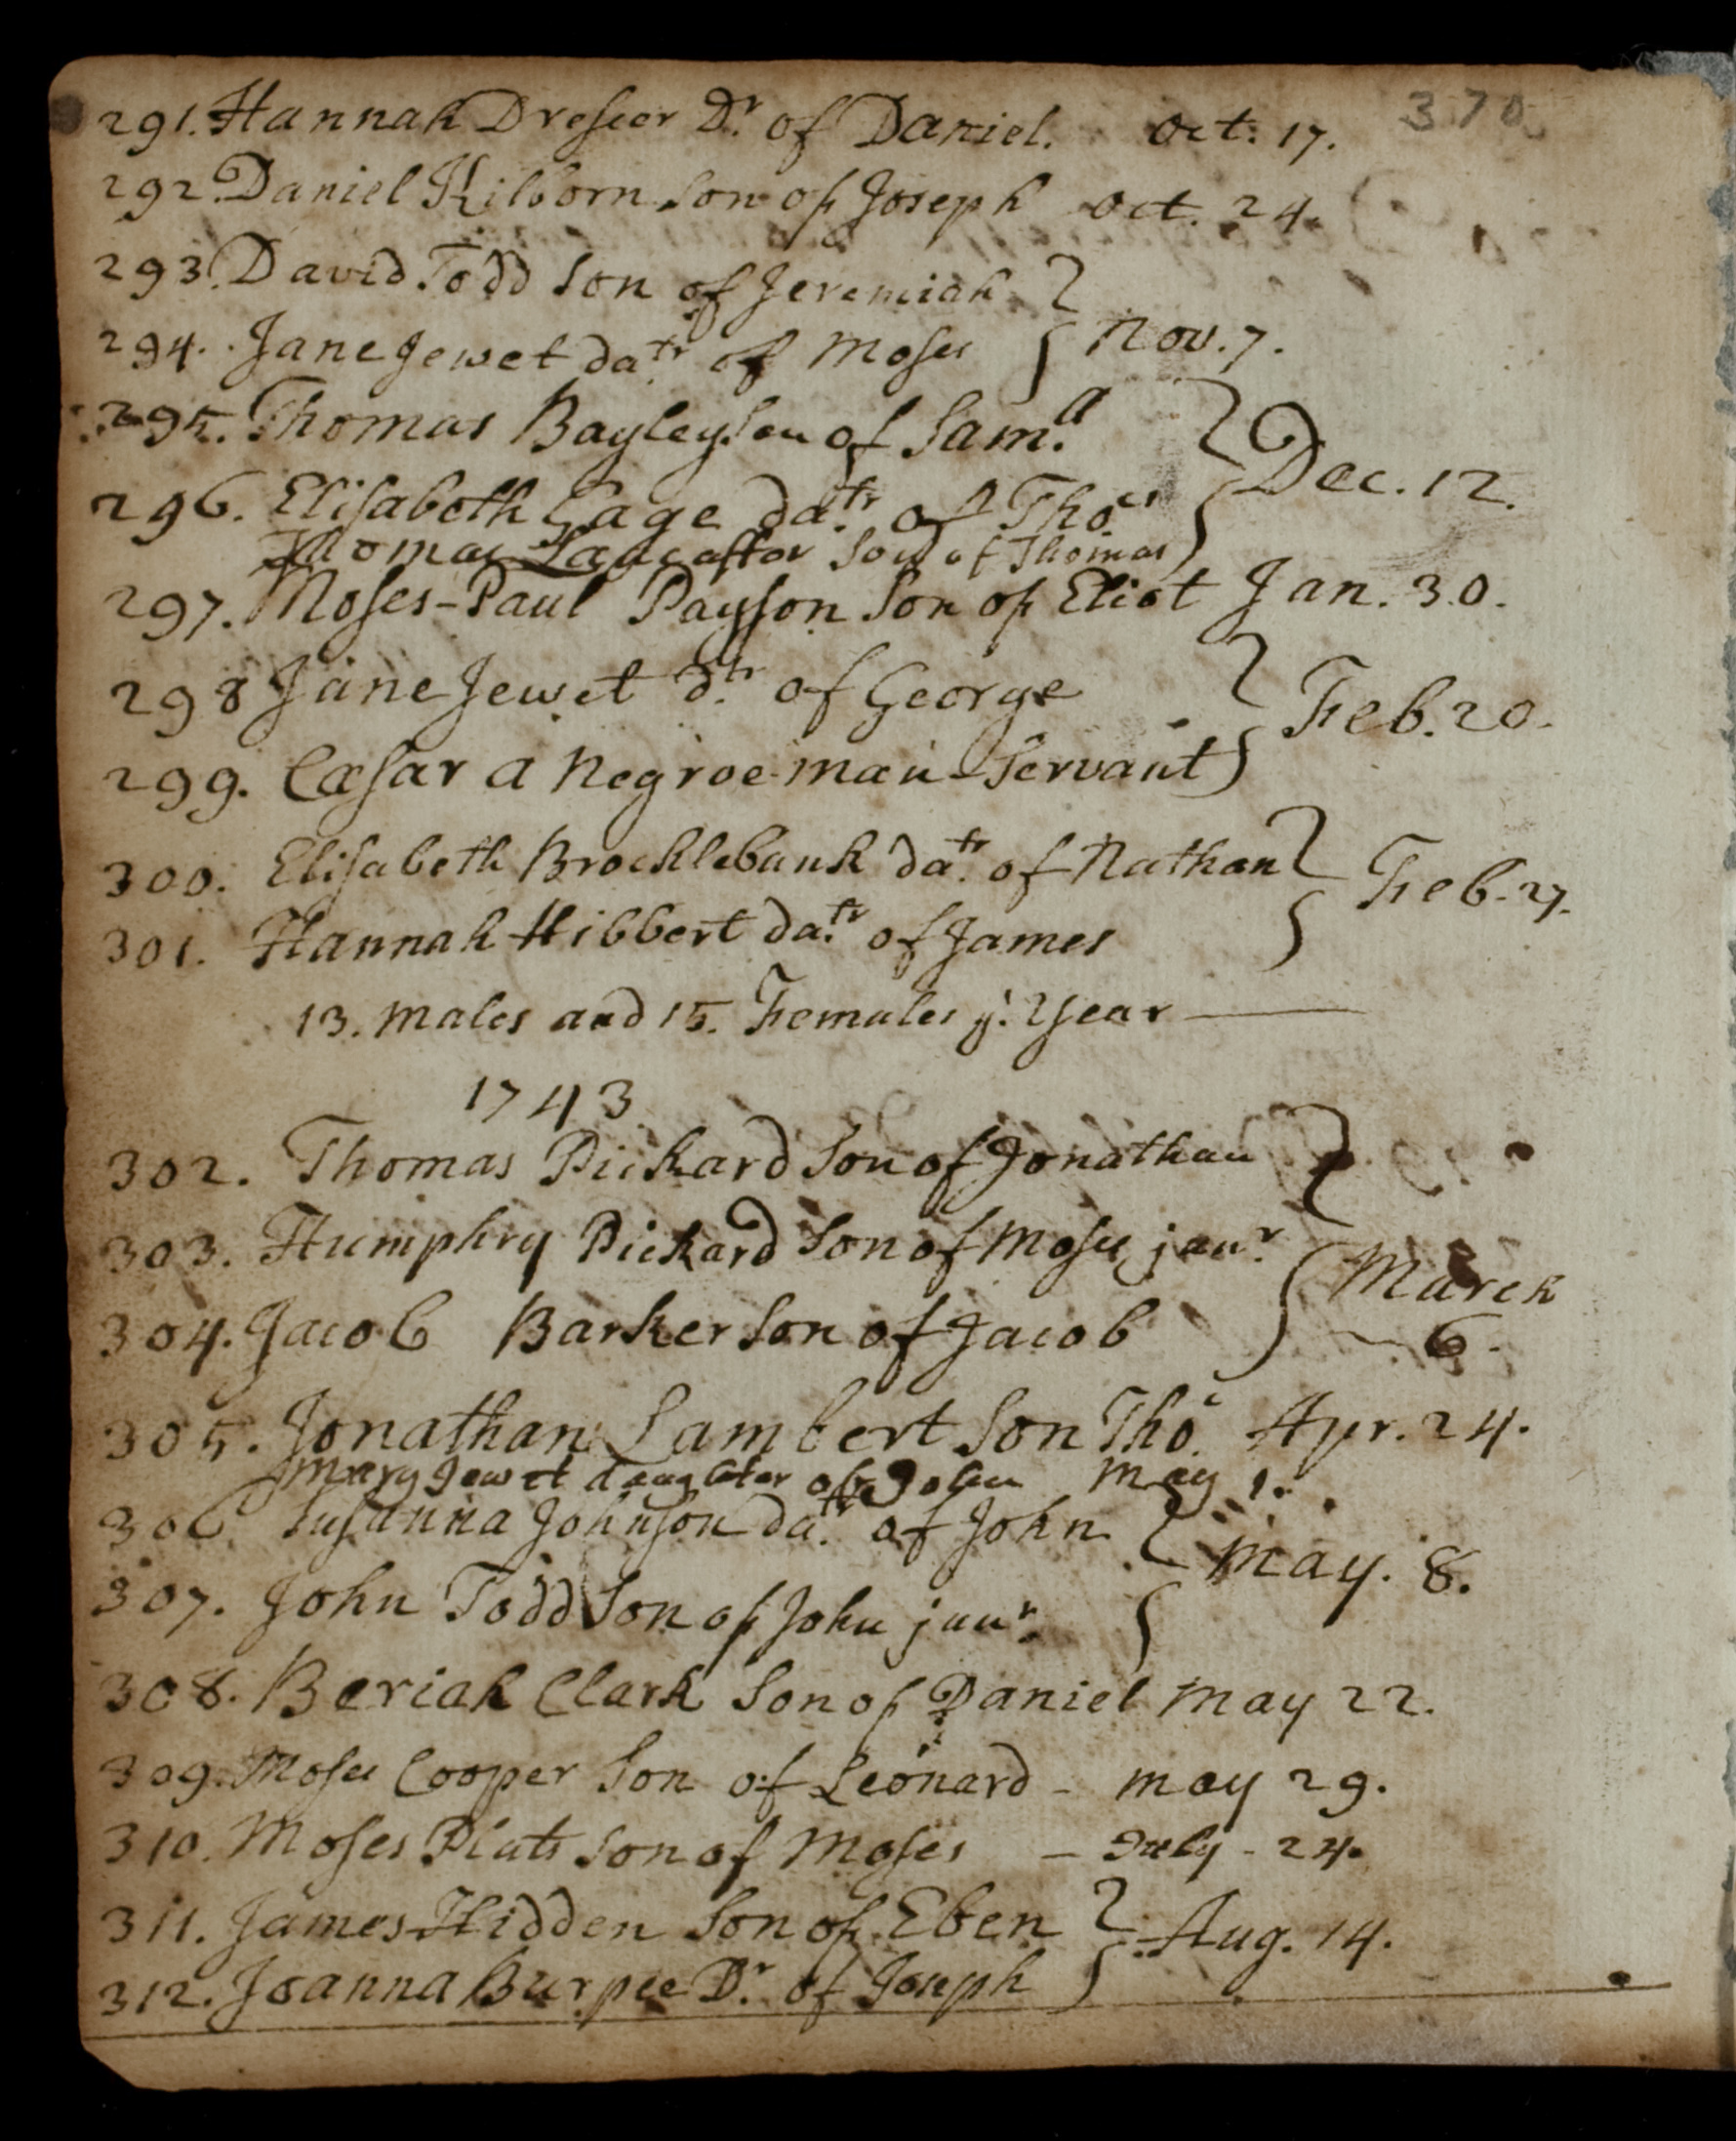 370
291. Hannah Dresser Dr. of Daniel. Oct. 17.
292. Daniel Kilborn Son of Joseph Oct. 24.
293. David Todd Son of Jeremiah
294. Jane Jewet datr. of Moses } Nov. 7.
295. Thomas Bayley Son of Samll.
296. Elisabeth Gage datr. of Thos } Dec. 12.
Thomas Lancaster Son of Thomas
297. Moses-Paul Payson Son of Eliot Jan. 30.
298 Jane Jewet dtr. of George
299. Cæsar a Negroe-man-Servant } Feb. 20.
300. Elisabeth Brocklebank datr. of Nathan
301. Hannah Hibbert datr. of James } Feb. 27.
13. Males and 15. Females ys. Year
1743
302. Thomas Pickard Son of Jonathan
303. Humphry Pickard Son of Moses junr.
304. Jacob Barker Son of Jacob } March 6.
305. Jonathan Lambert Son Thos. Apr. 24.
Mary Jewet daughter of John May 1.
306. Susanna Johnson datr. of John
307. John Todd Son of John junr. } May. 8.
308. Beriah Clark Son of Daniel May 22.
309. Moses Cooper Son of Leonard - May 29.
310. Moses Plats Son of Moses - July - 24.
311. James Hidden Son of Eben
312. Joanna Burpee Dr. of Joseph } Aug. 14.